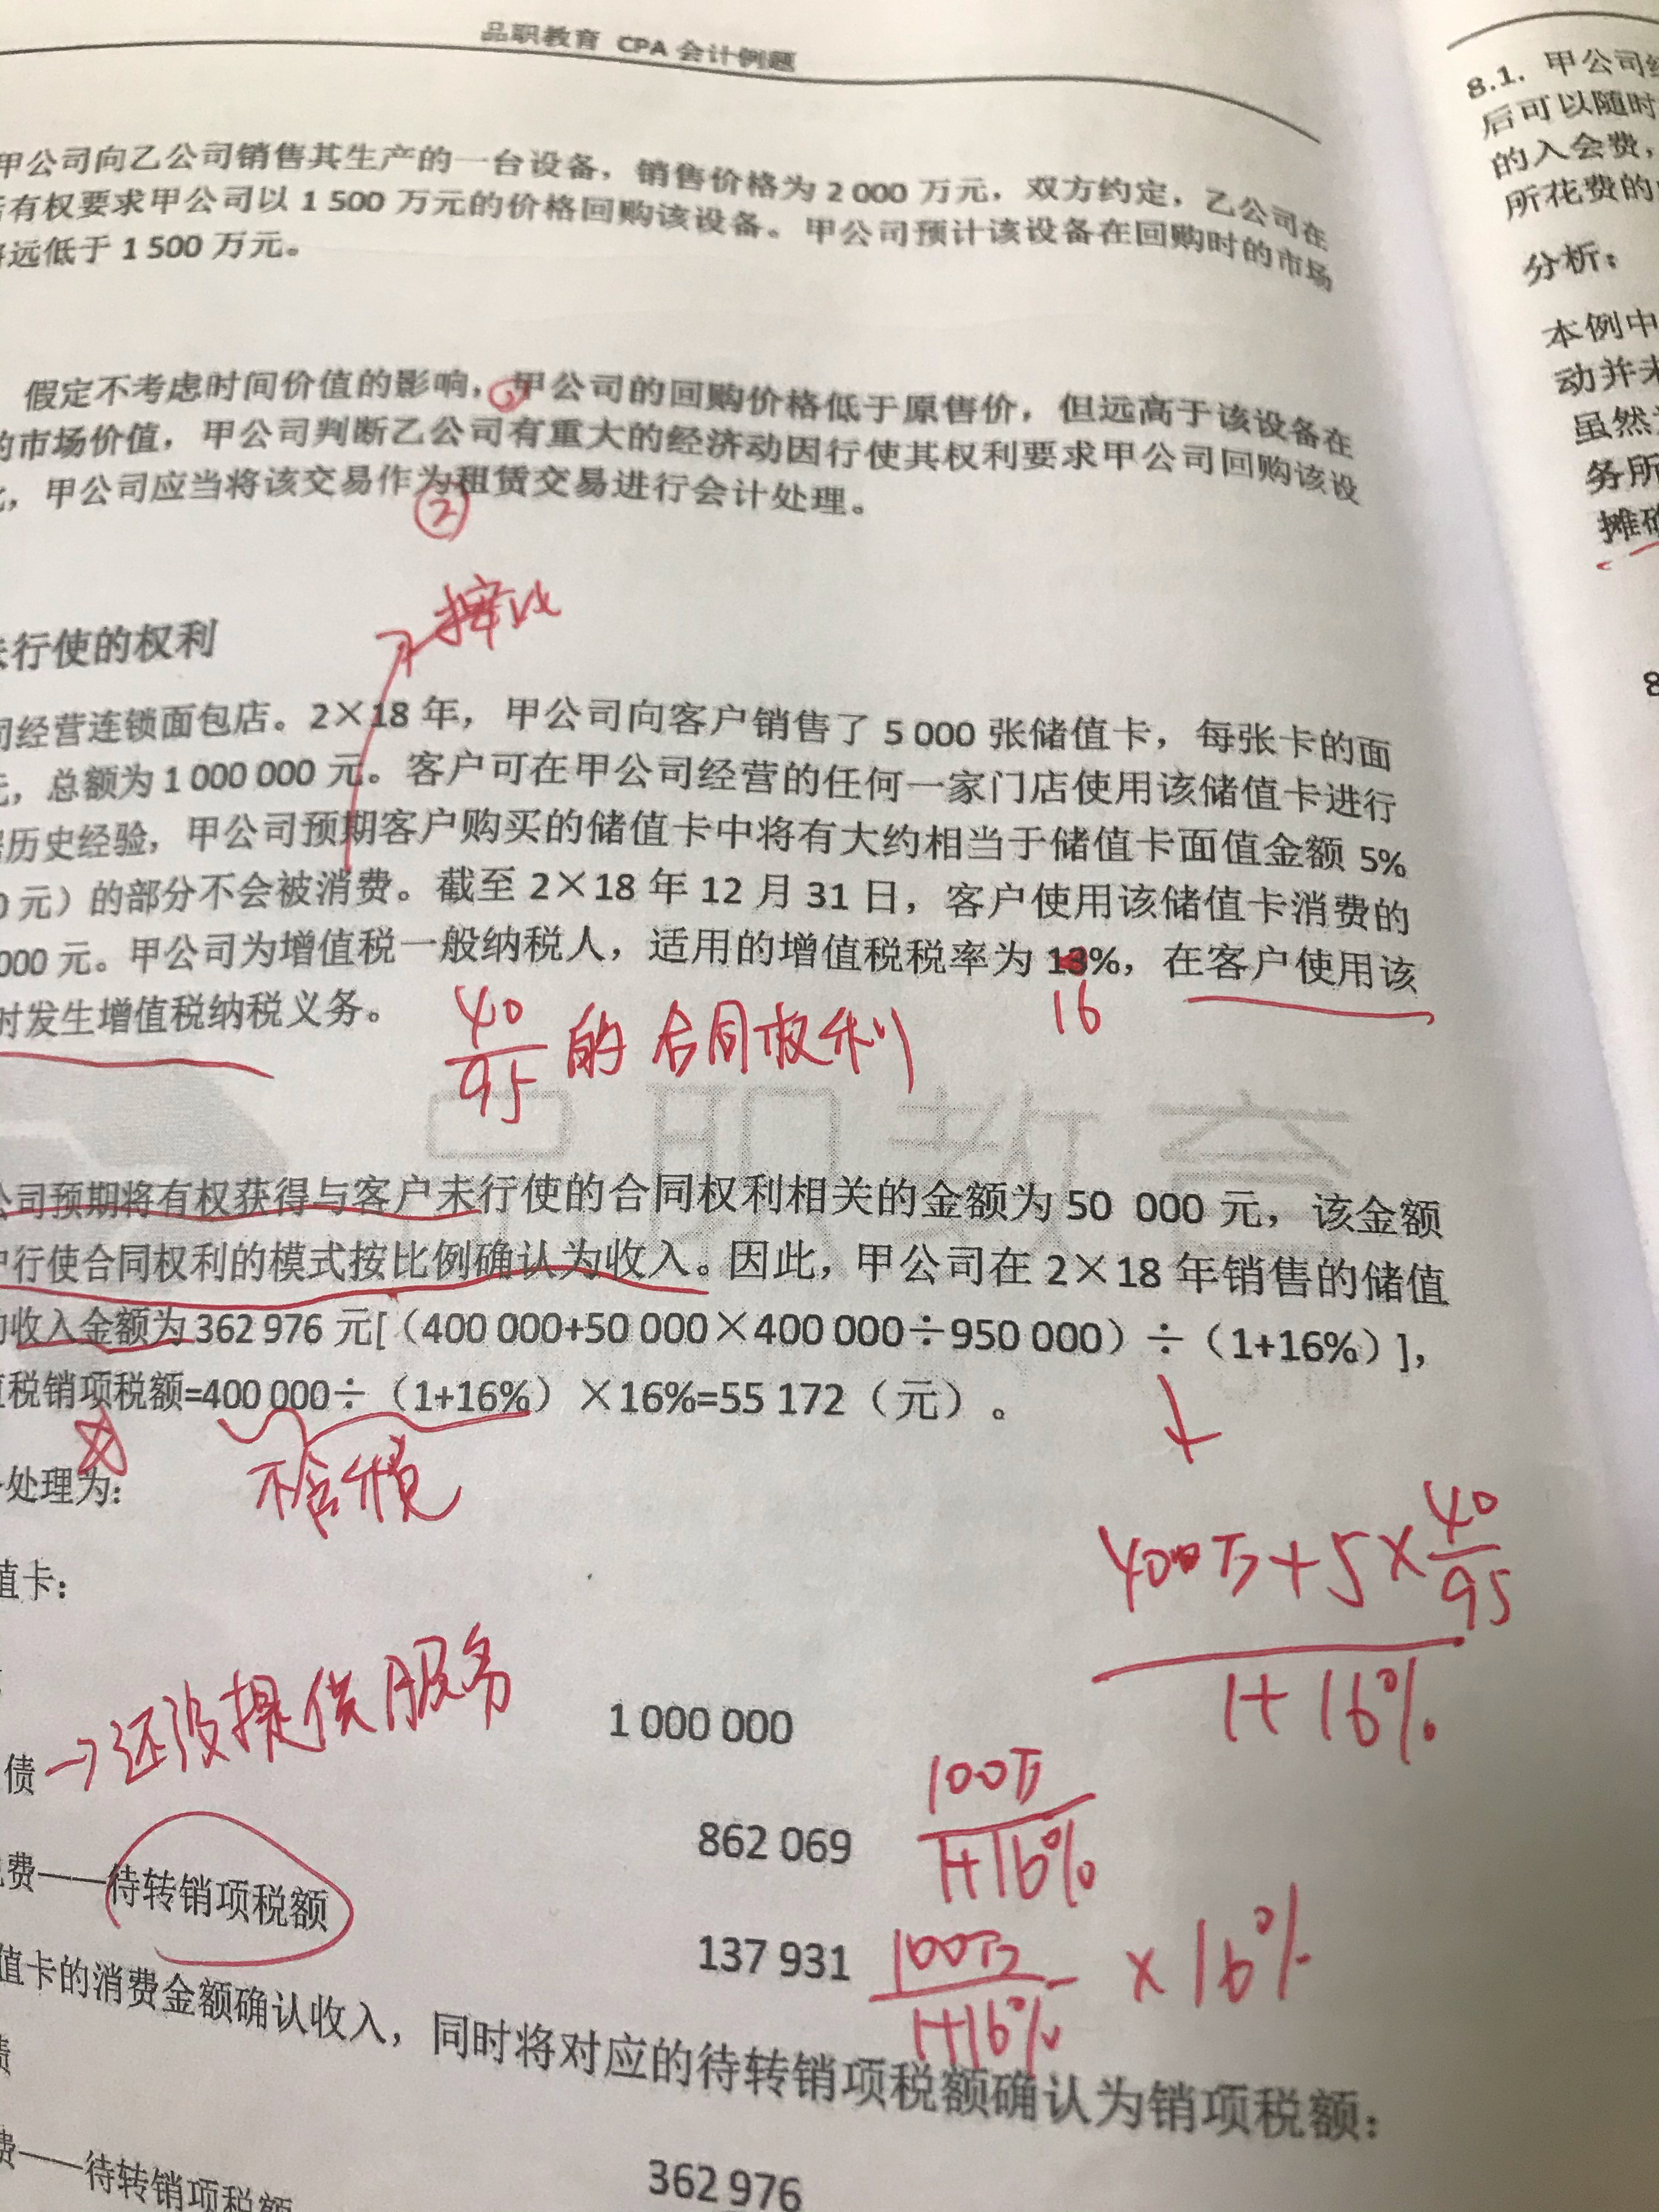 品职教育 CPA 会计例题
甲公司向乙公司销售其生产的一台设备，销售价格为 2 000 万元，双方约定，乙公司在
有权要求甲公司以 1 500 万元的价格回购该设备。甲公司预计该设备在回购时的市场
远低于 1 500 万元。
假定不考虑时间价值的影响，甲公司的回购价格低于原售价，但远高于该设备在
的市场价值，甲公司判断乙公司有重大的经济动因行使其权利要求甲公司回购该设
，甲公司应当将该交易作为租赁交易进行会计处理。
②
行使的权利
司经营连锁面包店。2×18 年，甲公司向客户销售了 5 000 张储值卡，每张卡的面
，总额为 1 000 000 元。客户可在甲公司经营的任何一家门店使用该储值卡进行
历史经验，甲公司预期客户购买的储值卡中将有大约相当于储值卡面值金额 5%
0 元）的部分不会被消费。截至 2×18 年 12 月 31 日，客户使用该储值卡消费的
000 元。甲公司为增值税一般纳税人，适用的增值税税率为 13%，在客户使用该
16
时发生增值税纳税义务。
40/95 的合同权利
品职教育
公司预期将有权获得与客户未行使的合同权利相关的金额为 50 000 元，该金额
户行使合同权利的模式按比例确认为收入。因此，甲公司在 2×18 年销售的储值
的收入金额为 362 976 元[（400 000+50 000×400 000÷950 000）÷（1+16%）]，
值税销项税额=400 000÷（1+16%）×16%=55 172（元）。
不含税
处理为：
400万+5×40/95
1+16%
值卡：
→还没提供服务
1 000 000
债
862 069
100万
1+16%
税费——待转销项税额
137 931
100万
1+16%
×16%
值卡的消费金额确认收入，同时将对应的待转销项税额确认为销项税额：
债
362 976
费——待转销项税额
8.1. 甲公司经
后可以随时
的入会费，
所花费的
分析：
本例中
动并未
虽然
务所
摊确
8